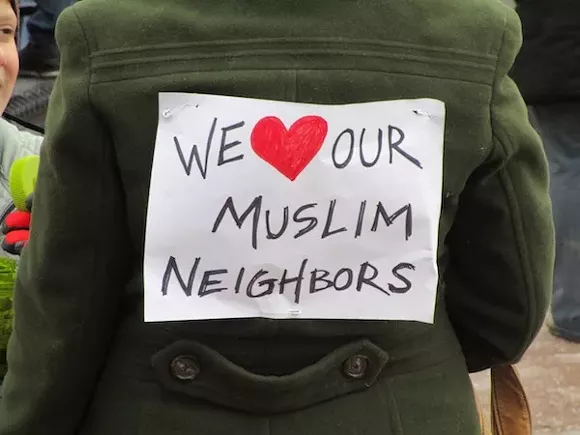 WE ❤ OUR
MUSLIM
NEIGHBORS